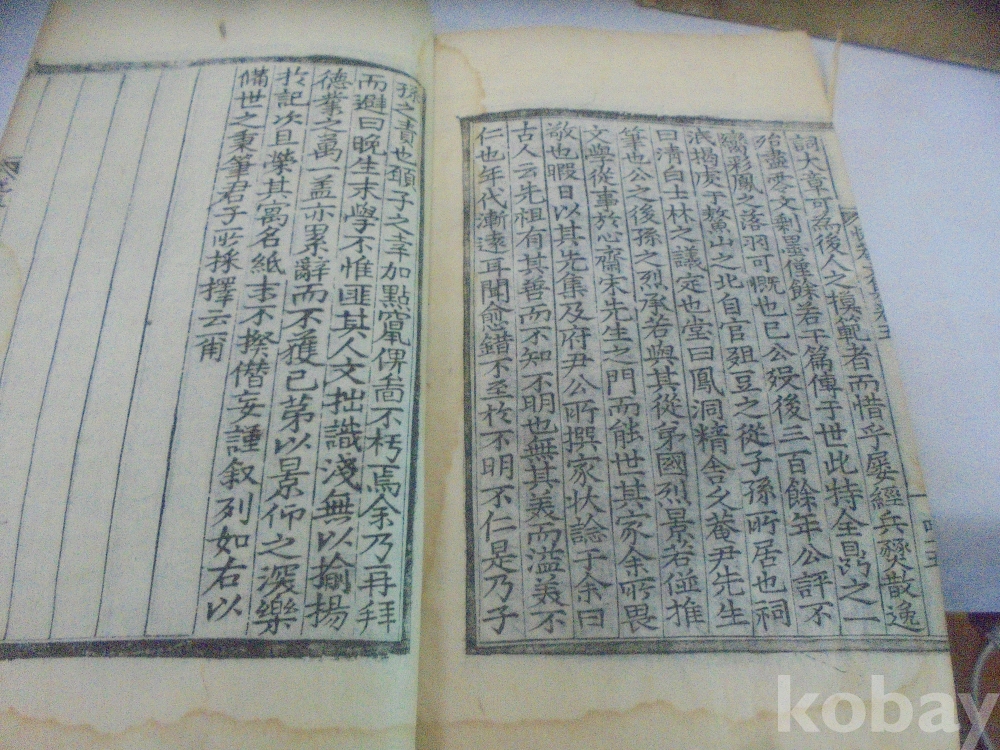 詞大章可爲後人之模範者而惜乎屢經兵燹散逸
殆盡零文剩墨僅餘若干篇傳于世此特全鼎之一
臠彩鳳之落羽可慨也已公歿後三百餘年公評不
泯揭虔于鰲山之北自官俎豆之從子孫所居也祠
曰淸白士林之議定也堂曰鳳洞精舍之菴尹先生
筆也公之後孫之烈承若與其從弟國烈景若倥推
文學從事於心齋宋先生之門而能世其家余所畏
敬也暇日以其先集及府尹公所撰家狀諗于余曰
古人云先祖有其善而不知不明也無其美而溢美不
仁也年代漸遠耳聞愈錯不至於不明不仁是乃子
孫之責也顧子之幸加點竄俾啚不朽焉余乃再拜
而避曰晩生末學不惟匪其人文拙識淺無以揄揚
德業之萬一盖亦累辭而不獲已第以景仰之深樂
於記次且榮其寓名紙末不揆僭妄謹叙列如右以
備世之秉筆君子所採擇云爾
kobay